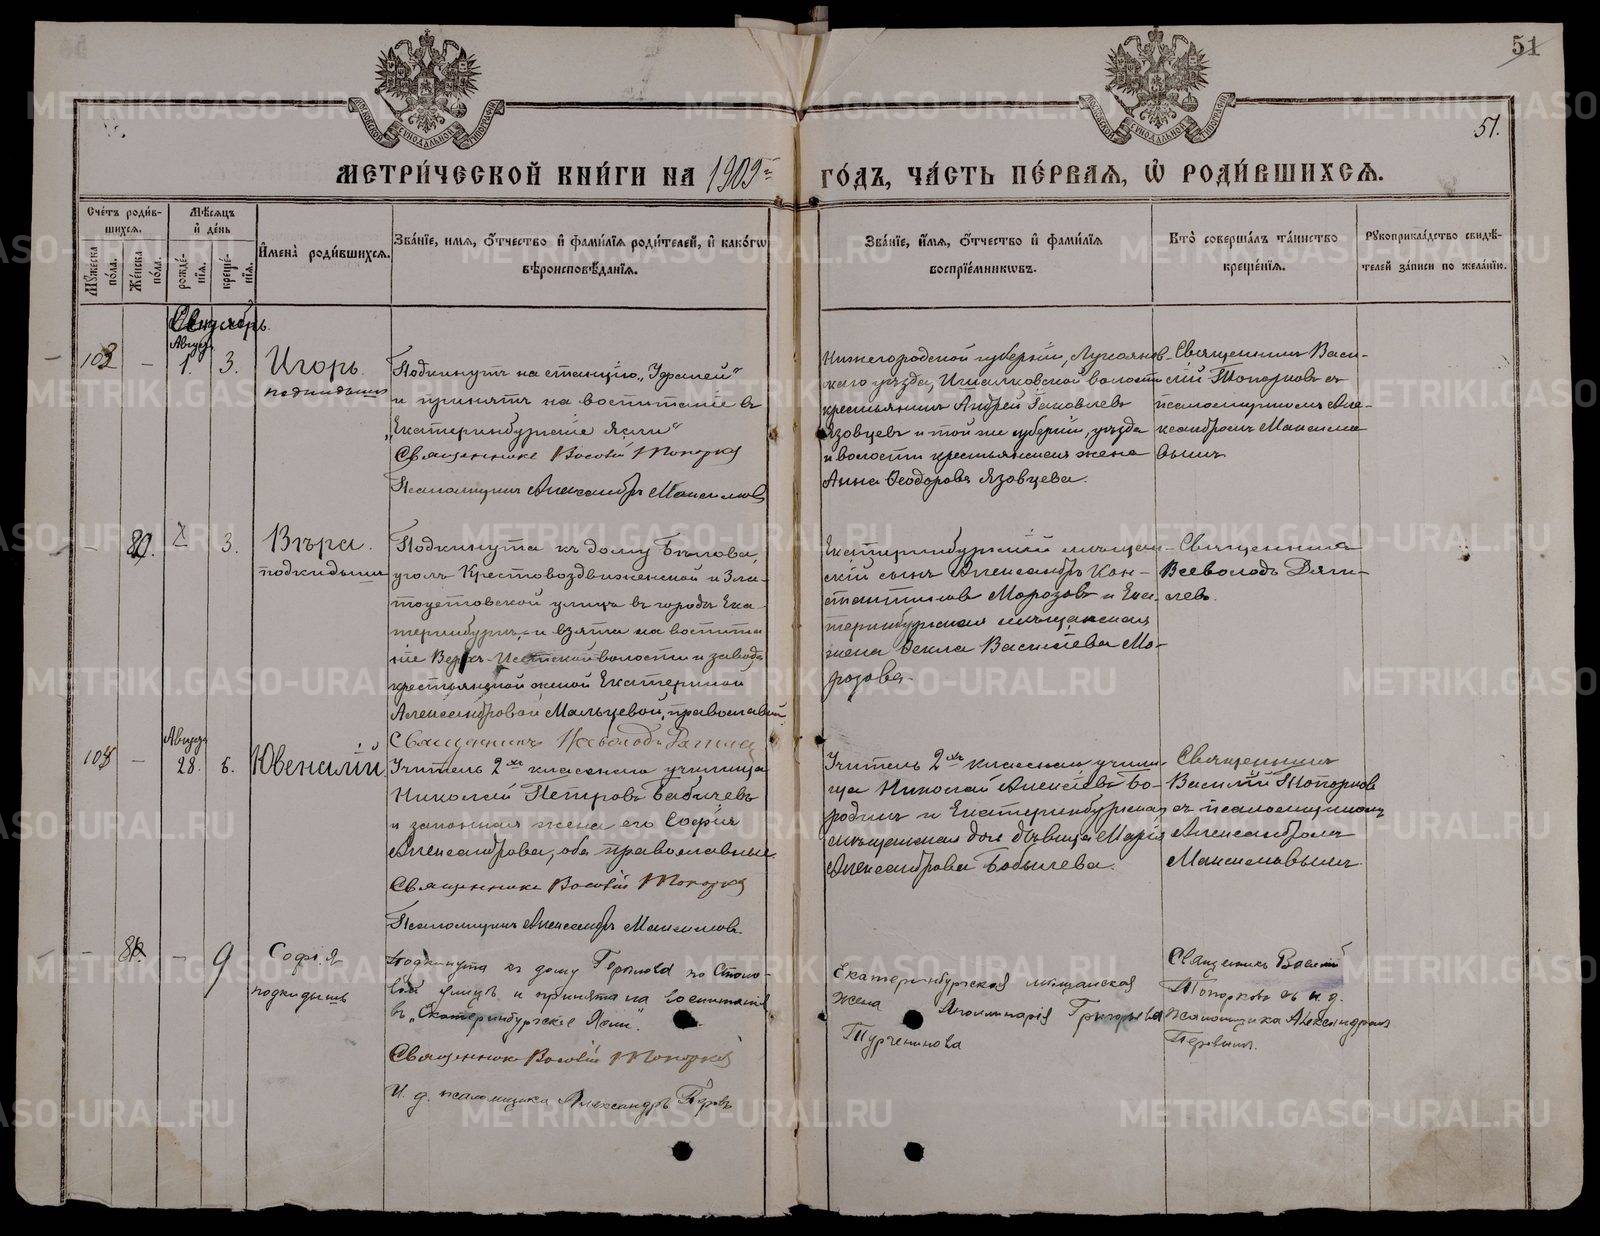 51
51.
МЕТРИ́ЧЕСКОЙ КНИ́ГИ НА 1909й
ГО́ДЪ, ЧА́СТЬ ПЕ́РВАЯ, Ѡ РОДИ́ВШИХСЯ.
Сче́тъ роди́в-
шихся.
Мѣ́сяцъ
и҆ де́нь
Мꙋ́жеска по́ла.
Же́нска по́ла.
рожде́-нїѧ.
креще́-нїѧ.
И҆мена̀ роди́вшихсѧ.
Зва́нїе, имѧ, ѻ҆́тчество и҆ фами́лїѧ роди́телей, и҆ како́гѡ
вѣроисповѣ́данїѧ.
Зва́нїе, и҆́мѧ, ѻ҆́тчество и҆ фами́лїѧ
воспрїе́мникѡвъ.
Кто̀ соверша́лъ та́инство
креще́нїѧ.
Рꙋкоприкла́дство свидѣ́-
телей за́писи по жела́нїю.
Сентябрь.
Август
103 - 1. 3. Игорь
подкидышъ
Подкинутъ на станцію „Уфалей“
и принятъ на воспитаніе въ
„Екатеринбургскіе Ясли“
Священникъ Василій Топорковъ
Псаломщикъ Александръ Максимовъ
Нижегородской губерніи, Лукоянов-
скаго уѣзда, Ичалковской волости
крестьянинъ Андрей Іаковлевъ
Язовцевъ и той же губерніи, уѣзда
и волости крестьянская жена
Анна Ѳеодорова Язовцева.
Священникъ Васи-
лій Топорковъ съ
псаломщикомъ Але-
ксандромъ Максимо-
вымъ
- 3. Вѣра.
подкидышъ
Подкинута къ дому Бѣлова,
уголъ Крестовоздвиженской и Зла-
тоустовской улицъ въ городѣ Ека-
теринбургѣ, и взята на воспита
ніе Верхъ-Исетской волости и завода
крестьянской женой Екатериной
Александровой Мальцевой, православной
Священникъ Всеволодъ
Екатеринбургскій мѣщан-
скій сынъ Александръ Кон-
стантиновъ Морозовъ и Ека-
теринбургская мѣщанская
жена Ѳекла Васильева Мо-
розова.
Священникъ
Всеволодъ
Август
- 28. 6. Ювеналій
Учитель 2хъ класснаго училища
Николай Петровъ Бабичевъ
и законная жена его Софія
Александрова, оба православные.
Священникъ Василій Топорковъ
Псаломщикъ Александръ Максимовъ.
Учитель 2хъ класснаго учили-
ща Николай Алексѣевъ Бо-
родинъ и Екатеринбургская
мѣщанская дочь дѣвица Марія
Александрова Бобылева.
Священникъ
Василій Топорков
съ псаломщикомъ
Александромъ
Максимовымъ.
- - 9 Софія
подкидышъ
Подкинута къ дому по
улицѣ и принята на воспитаніе
въ „Екатеринбургскіе Ясли“.
Священникъ Василій Топорковъ
И. д. псаломщика Александръ Перовъ
Екатеринбургская мѣщанская
жена Аполлинарія Григорьева
Турченинова
Священникъ Василій
Топорковъ съ и. д.
псаломщика Александромъ
Перовымъ.